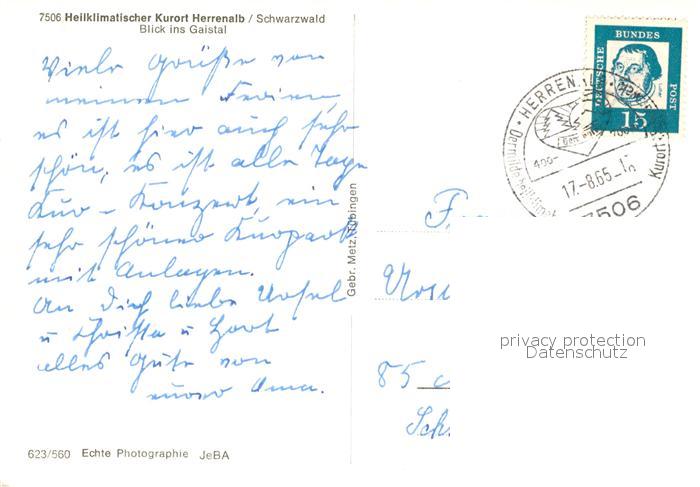 7506 Heilklimatischer Kurort Herrenalb / Schwarzwald
Blick ins Gaistal
Viele Grüße von
meinen Ferien,
es ist hier auch sehr
schön, es ist alle Tage
Kur-Konzert, ein
sehr schöner Kurpark
mit Anlagen.
An Dich liebe Ursel
u Christa u Horst
alles Gute von
eurer Oma.
623/560 Echte Photographie JeBA
Gebr. Metz, Tübingen
DEUTSCHE BUNDES POST
Luther
15
HERREN
400-
17.-8.65.-
7506
Kurort
F
Urs
85
Sch
privacy protection
Datenschutz